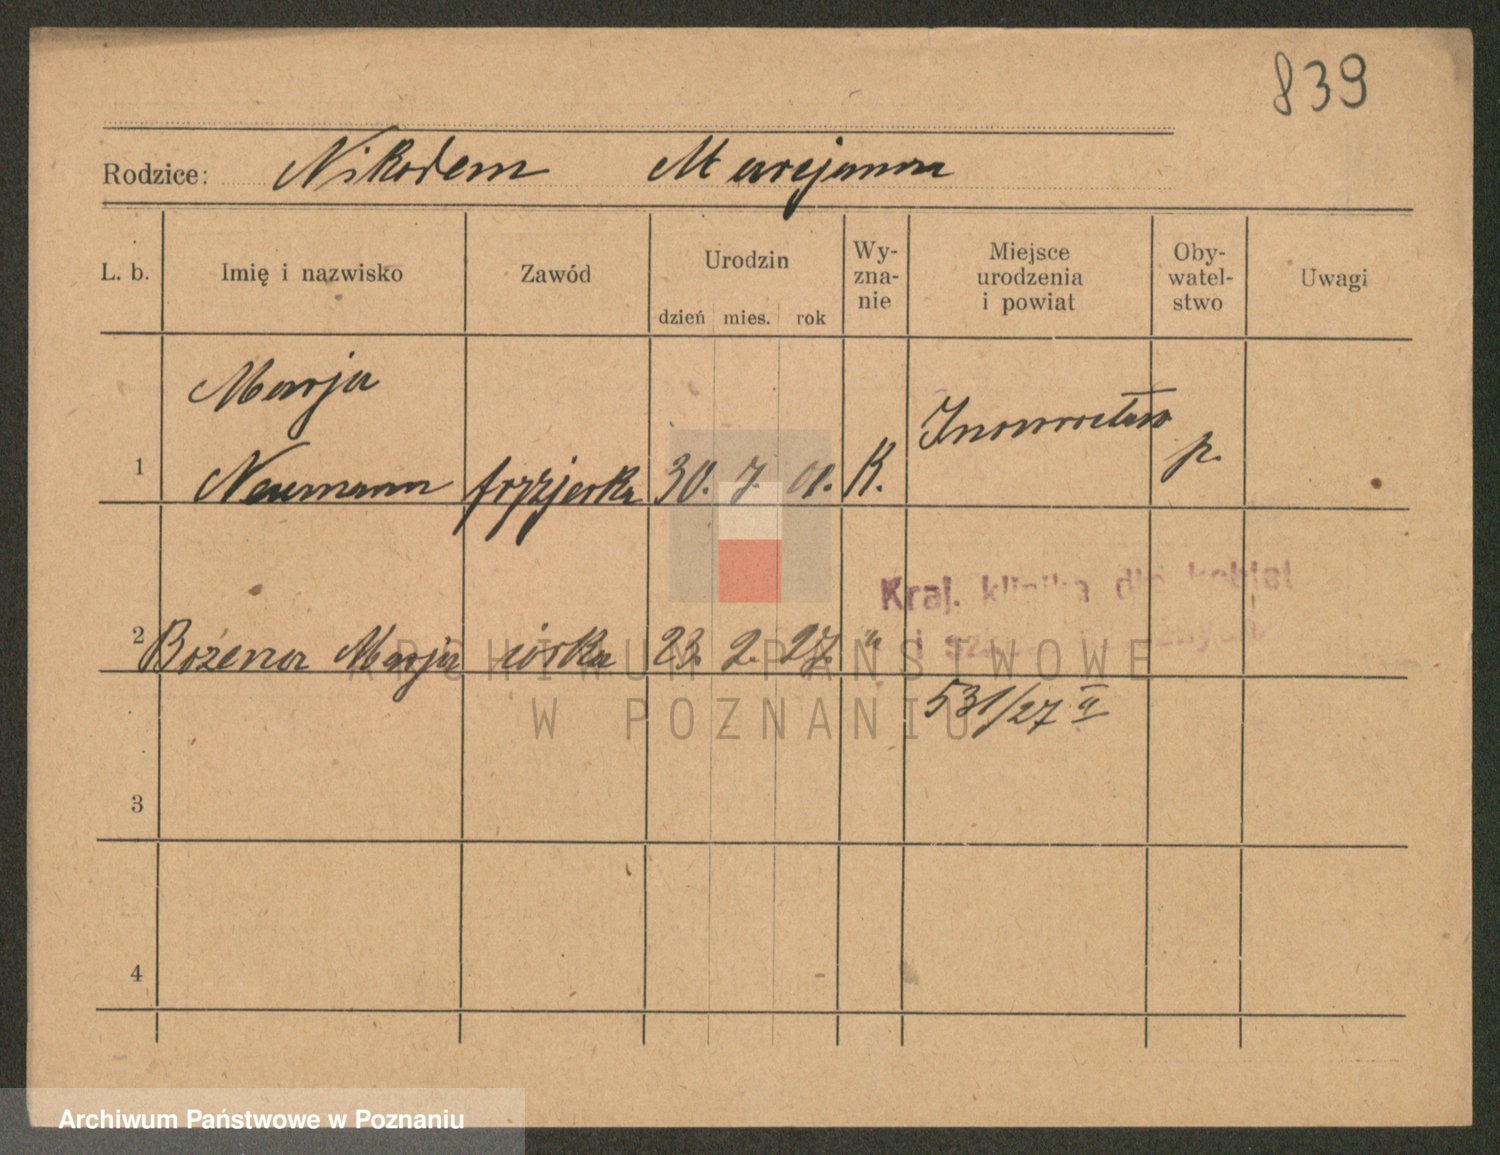 839
Rodzice: Nikodem Marejanna
L. b. Imię i nazwisko Zawód Urodzin Wy-zna-nie Miejsce urodzenia i powiat Oby-watel-stwo Uwagi
dzień mies. rok
Marja
Inowrocław
1 Neumann fryzjerka 30. 7. 01. K. p.
Kraj. klinika dla kobiet
2 Bożena Marja córka 23. 2. 27. "
ARCHIWUM PAŃSTWOWE
W POZNANIU
531/27 II
3
4
Archiwum Państwowe w Poznaniu